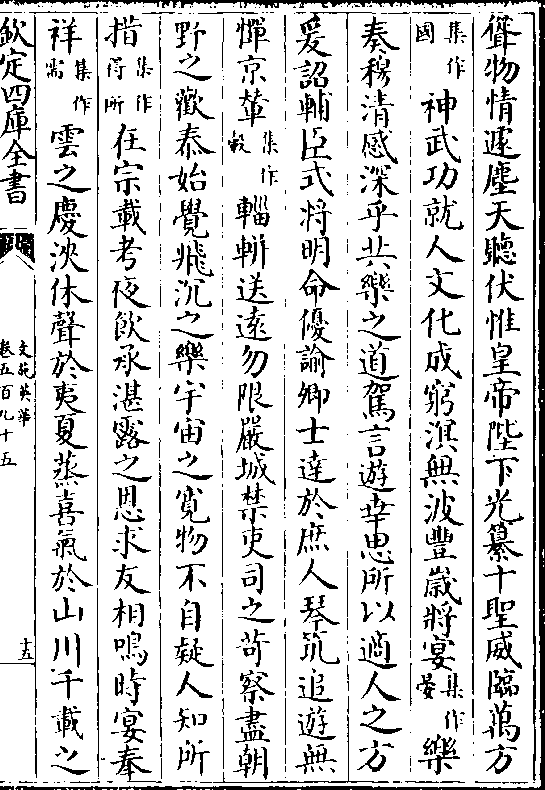 聳物情遽塵天聽伏惟皇帝陛下光纂十聖威臨萬方
集作國神武功就人文化成窮溟無波豐歲將宴集作晏樂
奏穆清感深乎共樂之道駕言遊幸思所以適人之方
爰詔輔臣式將明命優諭卿士達於庶人琴筑追遊無
憚京輦集作轂輜軿送遠勿限嚴城禁吏司之苛察盡朝
野之歡泰始覺飛沉之樂宇宙之寛物不自疑人知所
措集作得所在宗載考夜飲承湛露之恩求友相鳴時宴奉
祥集作需雲之慶浹休聲於夷夏蒸喜氣於山川千載之
欽定四庫全書
文苑英華
卷五百九十五
十五